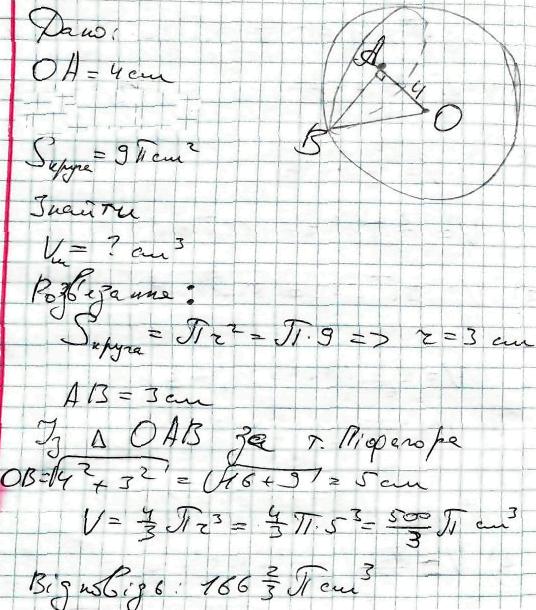 Дано:
OA = 4 cm
A
4
O
B
Sкруга = 9π cm²
Знайти
Vш = ? cm³
Розв'язання:
Sкруга = πr² = π·9 => r = 3 cm
AB = 3 cm
Із Δ OAB за т. Піфагора
OB = √4² + 3² = √16 + 9 = 5 cm
V = 4/3 πr³ = 4/3 π·5³ = 500/3 π cm³
Відповідь: 166 2/3 π cm³